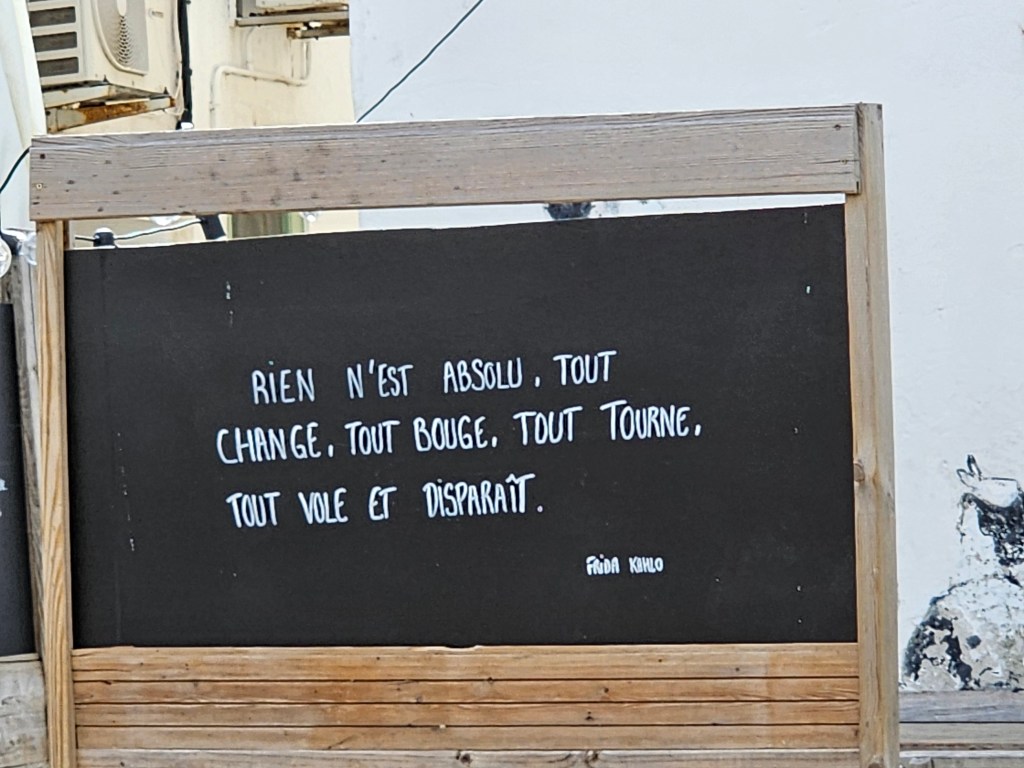 RIEN N'EST ABSOLU, TOUT
CHANGE, TOUT BOUGE, TOUT TOURNE,
TOUT VOLE ET DISPARAÎT.
FRIDA KAHLO